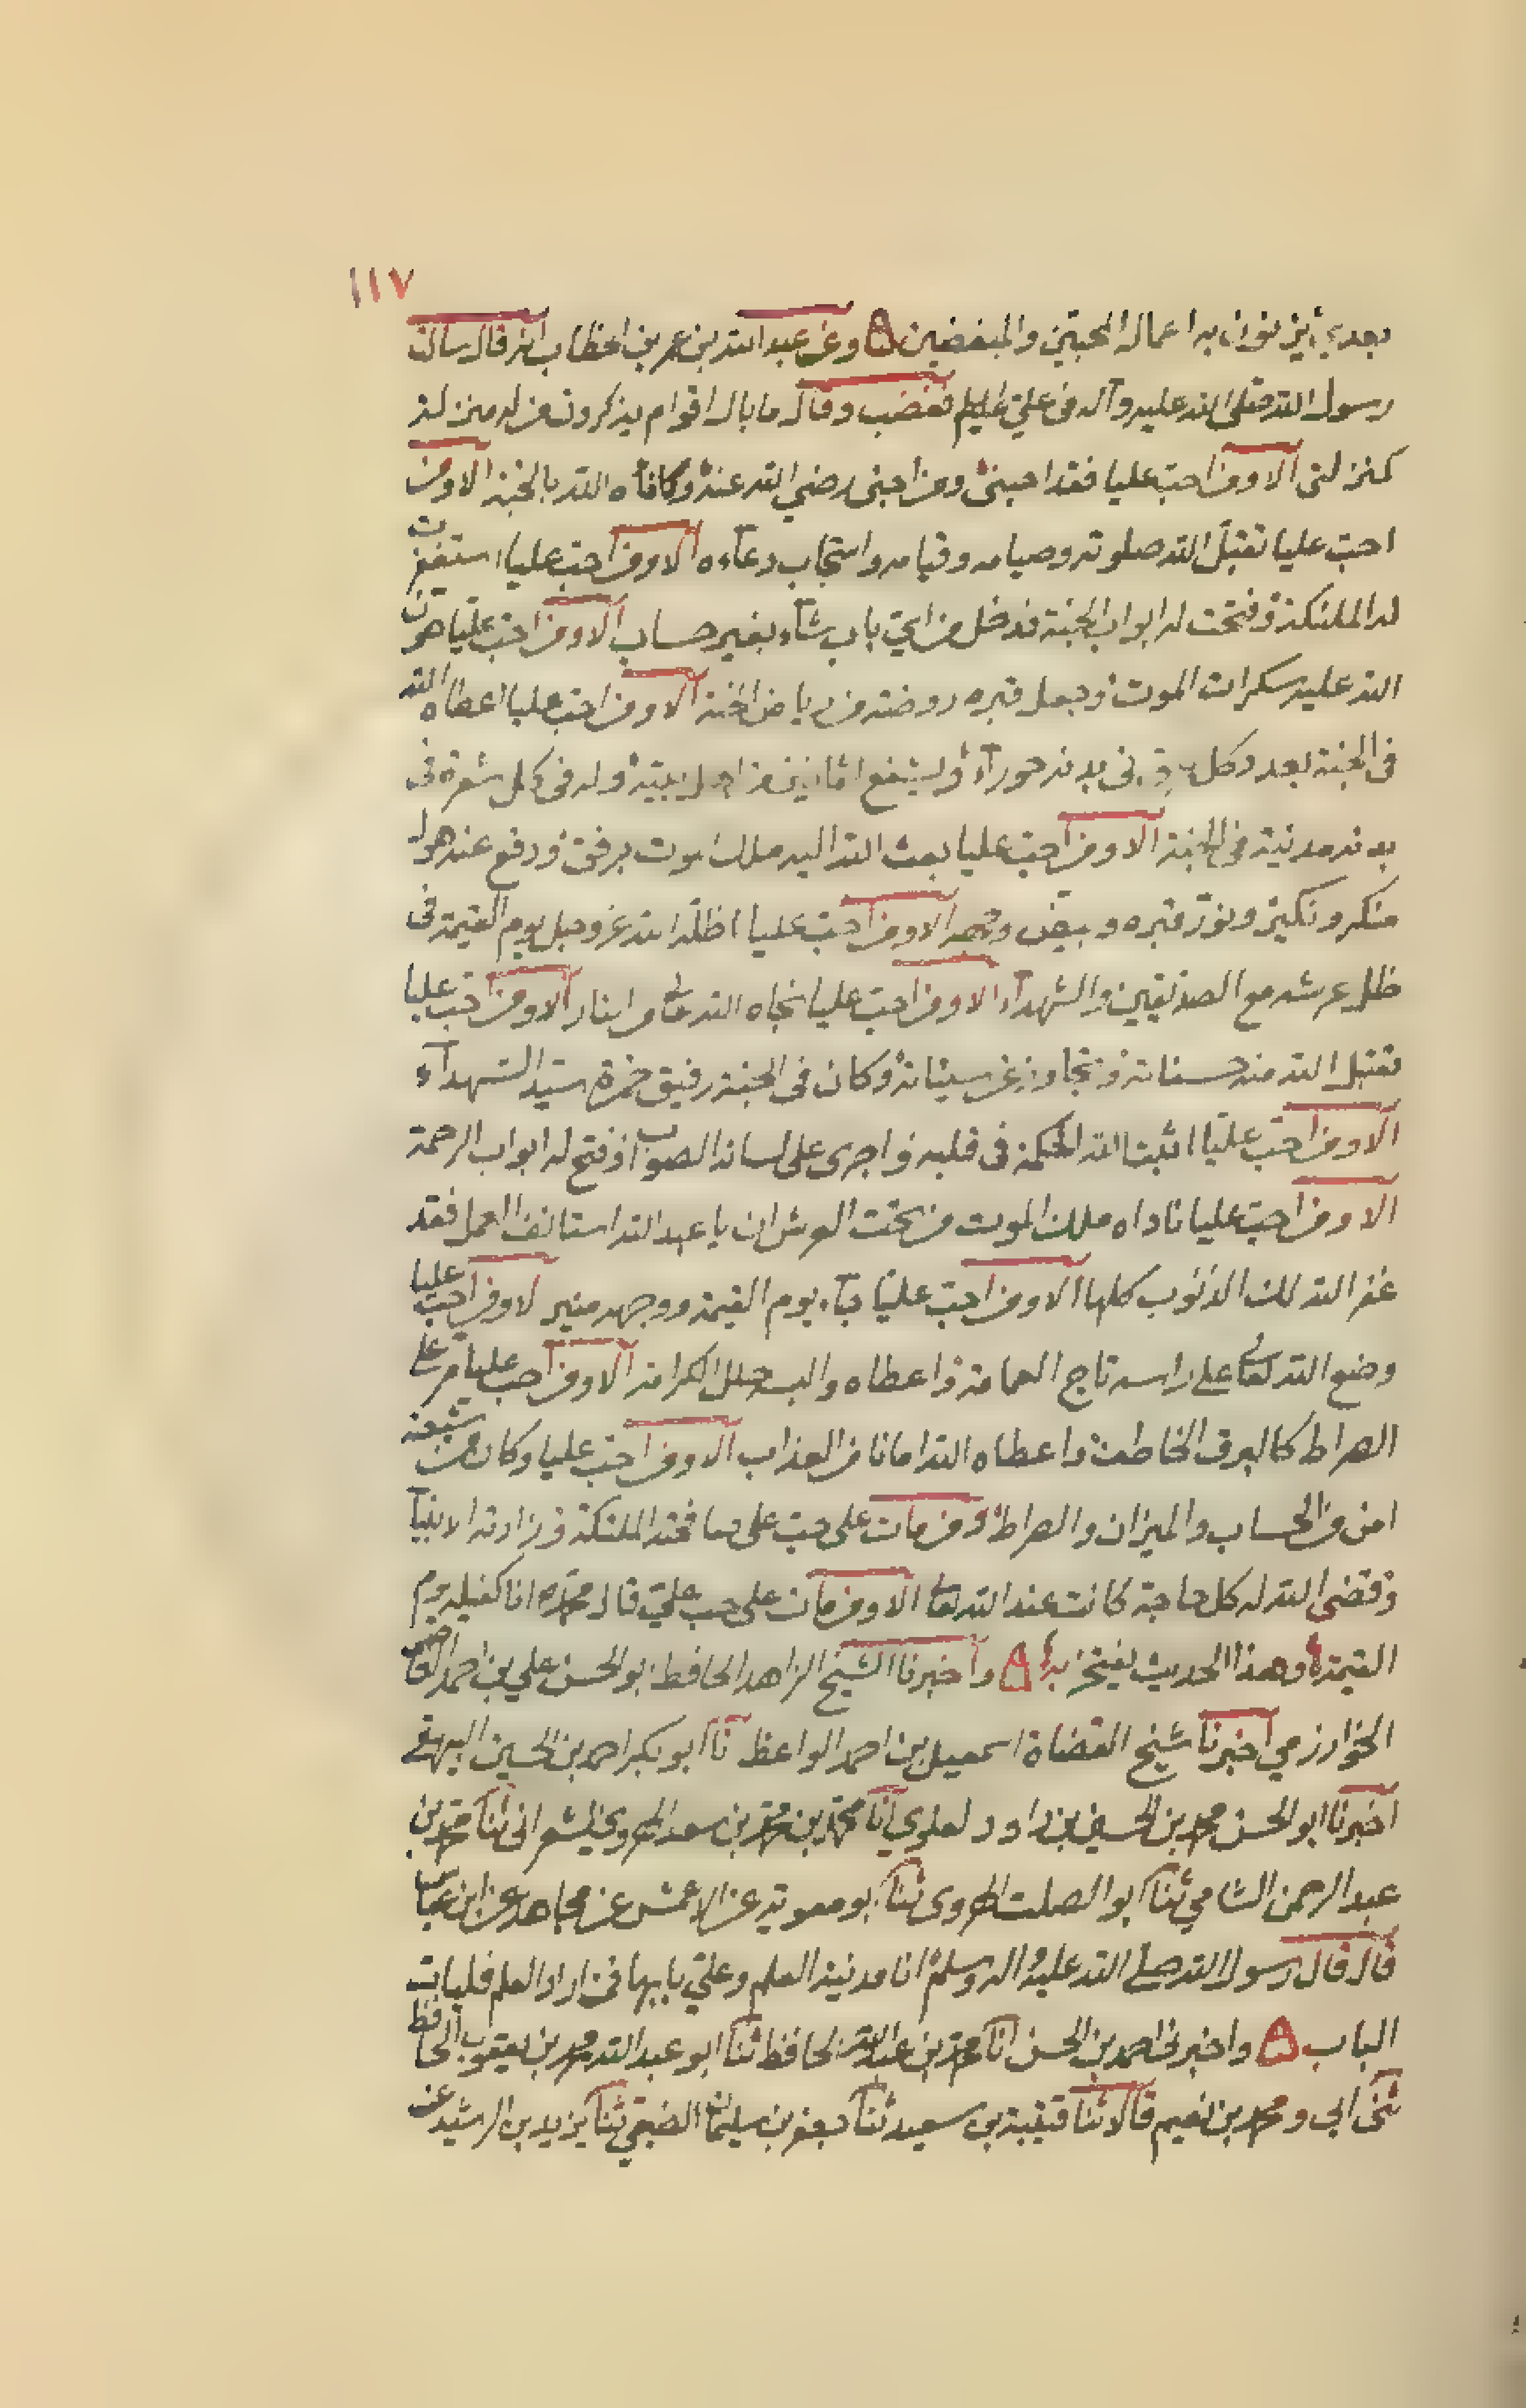 ١١٧
بعدي يزنون به اعمال المحبين والمبغضين ۵ وعن عبد الله بن عمر بن الخطاب انه قال سألت
رسول الله صلى الله عليه وآله في علي عليه السلم فغضب وقال ما بال اقوام يذكرون من له منزلة
كمنزلتي الا ومن احب عليا فقد احبني ومن احبني رضي الله عنه وكافأه الله بالجنة الا ومن
احب عليا تقبل الله صلوته وصيامه وقيامه واستجاب دعآءه الا ومن احب عليا استغفرت
له الملئكة وفتحت له ابواب الجنة فدخل من اي باب شآء بغير حساب الا ومن احب عليا هون
الله عليه سكرات الموت وجعل قبره روضة من رياض الجنة الا ومن احب عليا اعطاه الله
في الجنة بعدد كل عرق في بدنه حورآء ويشفع في ثمانين من اهل بيته وله في كل شعرة في
بدنه مدينة في الجنة الا ومن احب عليا بعث الله اليه ملك الموت برفق ودفع عنه هول
منكر ونكير ونور قبره وبيض وجهه الا ومن احب عليا اظله الله عز وجل يوم القيمة في
ظل عرشه مع الصديقين والشهدآء الا ومن احب عليا نجاه الله تعالى من النار الا ومن احب عليا
تقبل الله منه حسناته وتجاوز عن سيئاته وكان في الجنة رفيق حمزة سيد الشهدآء
الا ومن احب عليا اثبت الله الحكمة في قلبه واجرى على لسانه الصواب وفتح له ابواب الرحمة
الا ومن احب عليا ناداه ملك الموت من تحت العرش ان يا عبد الله استانف العمل فقد
غفر الله لك الذنوب كلها الا ومن احب عليا جآء يوم القيمة ووجهه منير الا ومن احب عليا
وضع الله تعالى على راسه تاج العمامة واعطاه والبسه حلل الكرامة الا ومن احب عليا مر على
الصراط كالبرق الخاطف واعطاه الله امانا من العذاب الا ومن احب عليا وكان من شيعته
امن من الحساب والميزان والصراط ومن مات على حب علي صافحته الملئكة وزارته الانبيآ
وقضى الله له كل حاجة كانت عند الله تعالى الا ومن مات على حب علي قال محمد انا كفيله يوم
القيمة وهذا الحديث يفتخر به ۵ وأخبرنا الشيخ الزاهد الحافظ ابو الحسن علي بن احمد العاصمي
الخوارزمي اخبرنا شيخ القضاة اسمعيل بن احمد الواعظ نا ابو بكر احمد بن الحسين البيهقي
اخبرنا ابو الحسن محمد بن الحسين بن داود العلوي انا محمد بن محمد بن سعد الهروي الشعراني ثنا محمد بن
عبد الرحمن الشامي ثنا ابو الصلت الهروي ثنا ابو معوية عن الاعمش عن مجاهد عن ابن عباس
قال قال رسول الله صلى الله عليه واله وسلم انا مدينة العلم وعلي بابها فمن اراد العلم فليات
الباب ۵ واخبرني احمد بن الحسن انا محمد بن عبد الله الحافظ ثنا ابو عبد الله محمد بن يعقوب الحافظ
ثنى ابي ومحمد بن نعيم قالا ثنا قتيبة بن سعيد ثنا جعفر بن سليمان الضبعي ثنا يزيد بن الرشيد عن